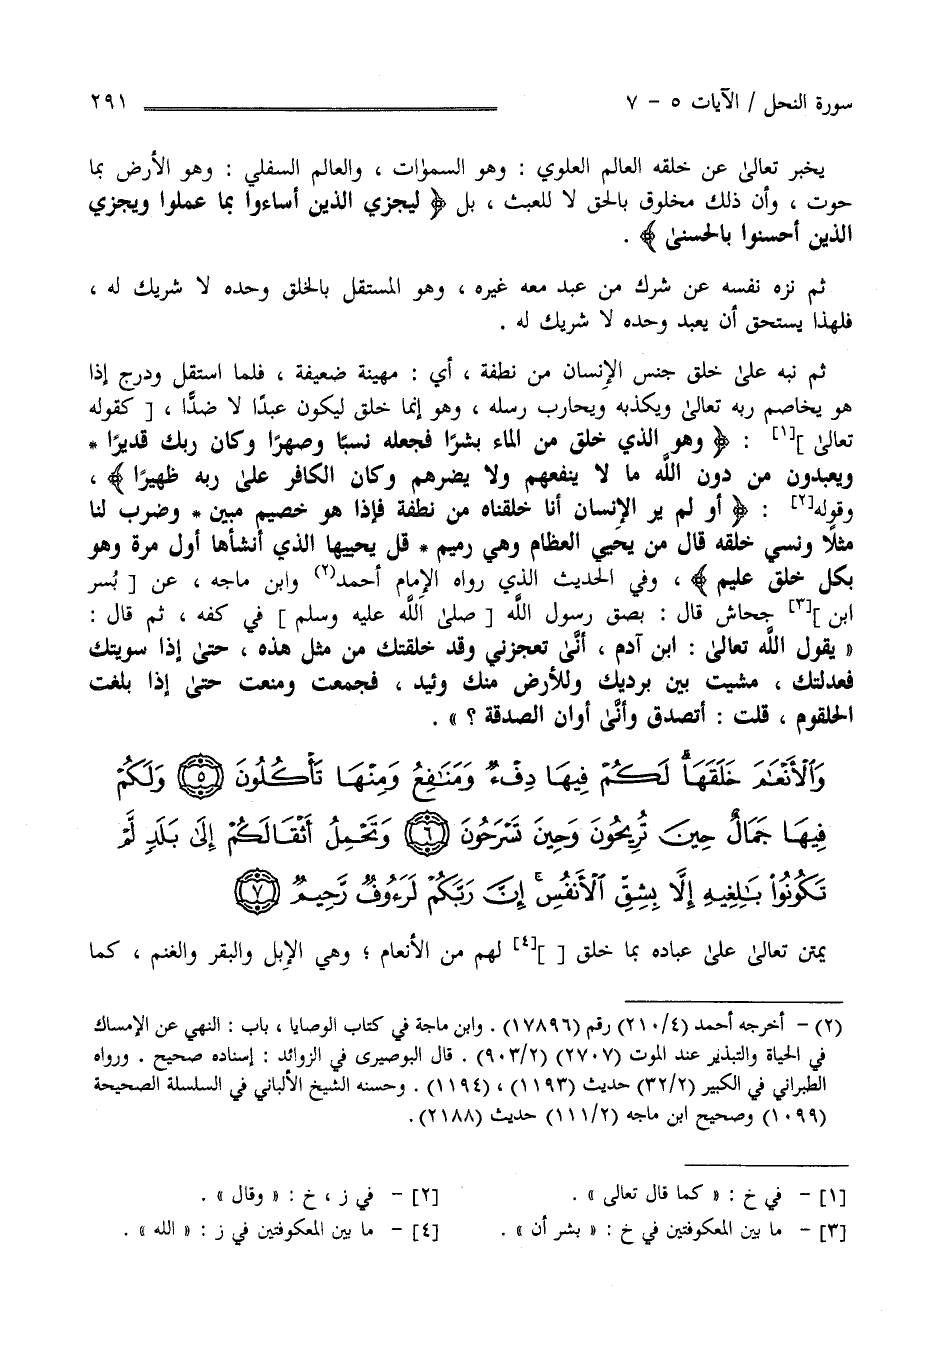 سورة النحل / الآيات ٥ - ٧
٢٩١
يخبر تعالىٰ عن خلقه العالم العلوي : وهو السمٰوات ، والعالم السفلي : وهو الأرض بما
حوت ، وأن ذلك مخلوق بالحق لا للعبث ، بل ﴿ ليجزي الذين أساءوا بما عملوا ويجزي
الذين أحسنوا بالحسنىٰ ﴾ .
ثم نزه نفسه عن شرك من عبد معه غيره ، وهو المستقل بالخلق وحده لا شريك له ،
فلهذا يستحق أن يعبد وحده لا شريك له .
ثم نبه علىٰ خلق جنس الإنسان من نطفة ، أي : مهينة ضعيفة ، فلما استقل ودرج إذا
هو يخاصم ربه تعالىٰ ويكذبه ويحارب رسله ، وهو إنما خلق ليكون عبدًا لا ضدًّا ، [ كقوله
تعالىٰ ][١] : ﴿ وهو الذي خلق من الماء بشرًا فجعله نسبًا وصهرًا وكان ربك قديرًا *
ويعبدون من دون اللَّه ما لا ينفعهم ولا يضرهم وكان الكافر علىٰ ربه ظهيرًا ﴾ ،
وقوله[٢] : ﴿ أو لم ير الإنسان أنا خلقناه من نطفة فإذا هو خصيم مبين * وضرب لنا
مثلًا ونسي خلقه قال من يحيي العظام وهي رميم * قل يحييها الذي أنشأها أول مرة وهو
بكل خلق عليم ﴾ ، وفي الحديث الذي رواه الإمام أحمد(٢) وابن ماجه ، عن [ بُسر
ابن ][٣] جحاش قال : بصق رسول اللَّه [ صلىٰ اللَّه عليه وسلم ] في كفه ، ثم قال :
« يقول اللَّه تعالىٰ : ابن آدم ، أنَّىٰ تعجزني وقد خلقتك من مثل هذه ، حتىٰ إذا سويتك
فعدلتك ، مشيت بين برديك وللأرض منك وئيد ، فجمعت ومنعت حتىٰ إذا بلغت
الحلقوم ، قلت : أتصدق وأنَّىٰ أوان الصدقة ؟ » .
وَٱلْأَنْعَٰمَ خَلَقَهَا ۗ لَكُمْ فِيهَا دِفْءٌ وَمَنَٰفِعُ وَمِنْهَا تَأْكُلُونَ ﴿٥﴾ وَلَكُمْ
فِيهَا جَمَالٌ حِينَ تُرِيحُونَ وَحِينَ تَسْرَحُونَ ﴿٦﴾ وَتَحْمِلُ أَثْقَالَكُمْ إِلَىٰ بَلَدٍ لَّمْ
تَكُونُوا۟ بَٰلِغِيهِ إِلَّا بِشِقِّ ٱلْأَنفُسِ ۚ إِنَّ رَبَّكُمْ لَرَءُوفٌ رَّحِيمٌ ﴿٧﴾
يمتن تعالىٰ علىٰ عباده بما خلق [ ][٤] لهم من الأنعام ؛ وهي الإبل والبقر والغنم ، كما
(٢) - أخرجه أحمد (٢١٠/٤) رقم (١٧٨٩٦) . وابن ماجة في كتاب الوصايا ، باب : النهي عن الإمساك
في الحياة والتبذير عند الموت (٢٧٠٧) (٩٠٣/٢) . قال البوصيرى في الزوائد : إسناده صحيح . ورواه
الطبراني في الكبير (٣٢/٢) حديث (١١٩٣) ، (١١٩٤) . وحسنه الشيخ الألباني في السلسلة الصحيحة
(١٠٩٩) وصحيح ابن ماجه (١١١/٢) حديث (٢١٨٨).
[١] - في خ : « كما قال تعالى » .
[٢] - في ز ، خ : « وقال » .
[٣] - ما بين المعكوفتين في خ : « بشر أن » .
[٤] - ما بين المعكوفتين في ز : « الله » .